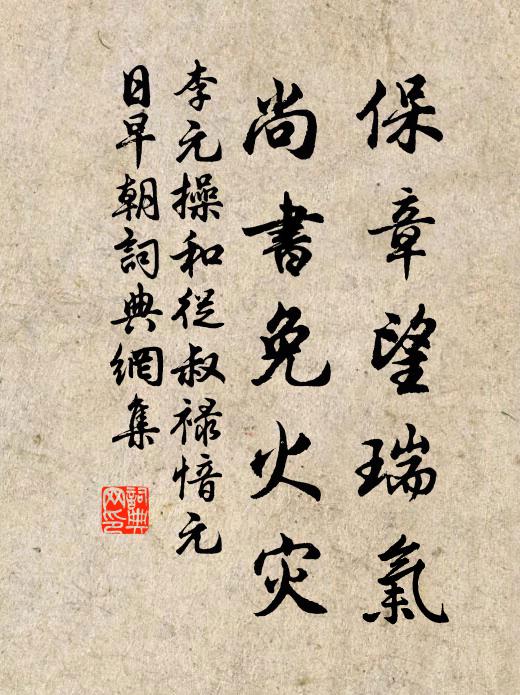 保章望瑞氣
尚書免火灾
李元操和從叔祿愔元
日早朝詞典網集
詞典網印